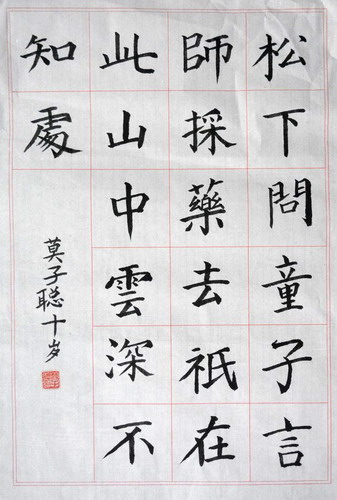 松下問童子言
師採藥去祇在
此山中雲深不
知處
莫子聪十岁